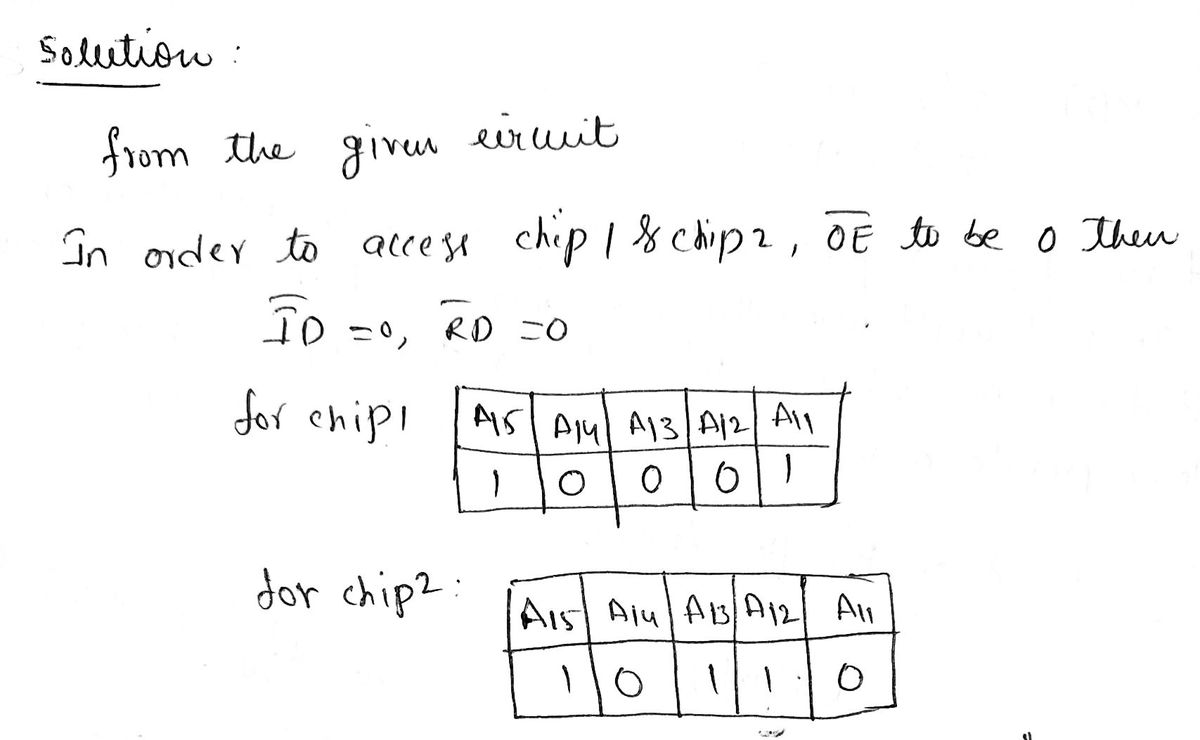 Solution :
from the given circuit
In order to access chip 1 & chip 2, O̅E̅ to be 0 then
I̅D̅ = 0, R̅D̅ = 0
for chip 1
A15 A14 A13 A12 A11
1 0 0 0 1
for chip 2 :
A15 A14 A13 A12 A11
1 0 1 1 0